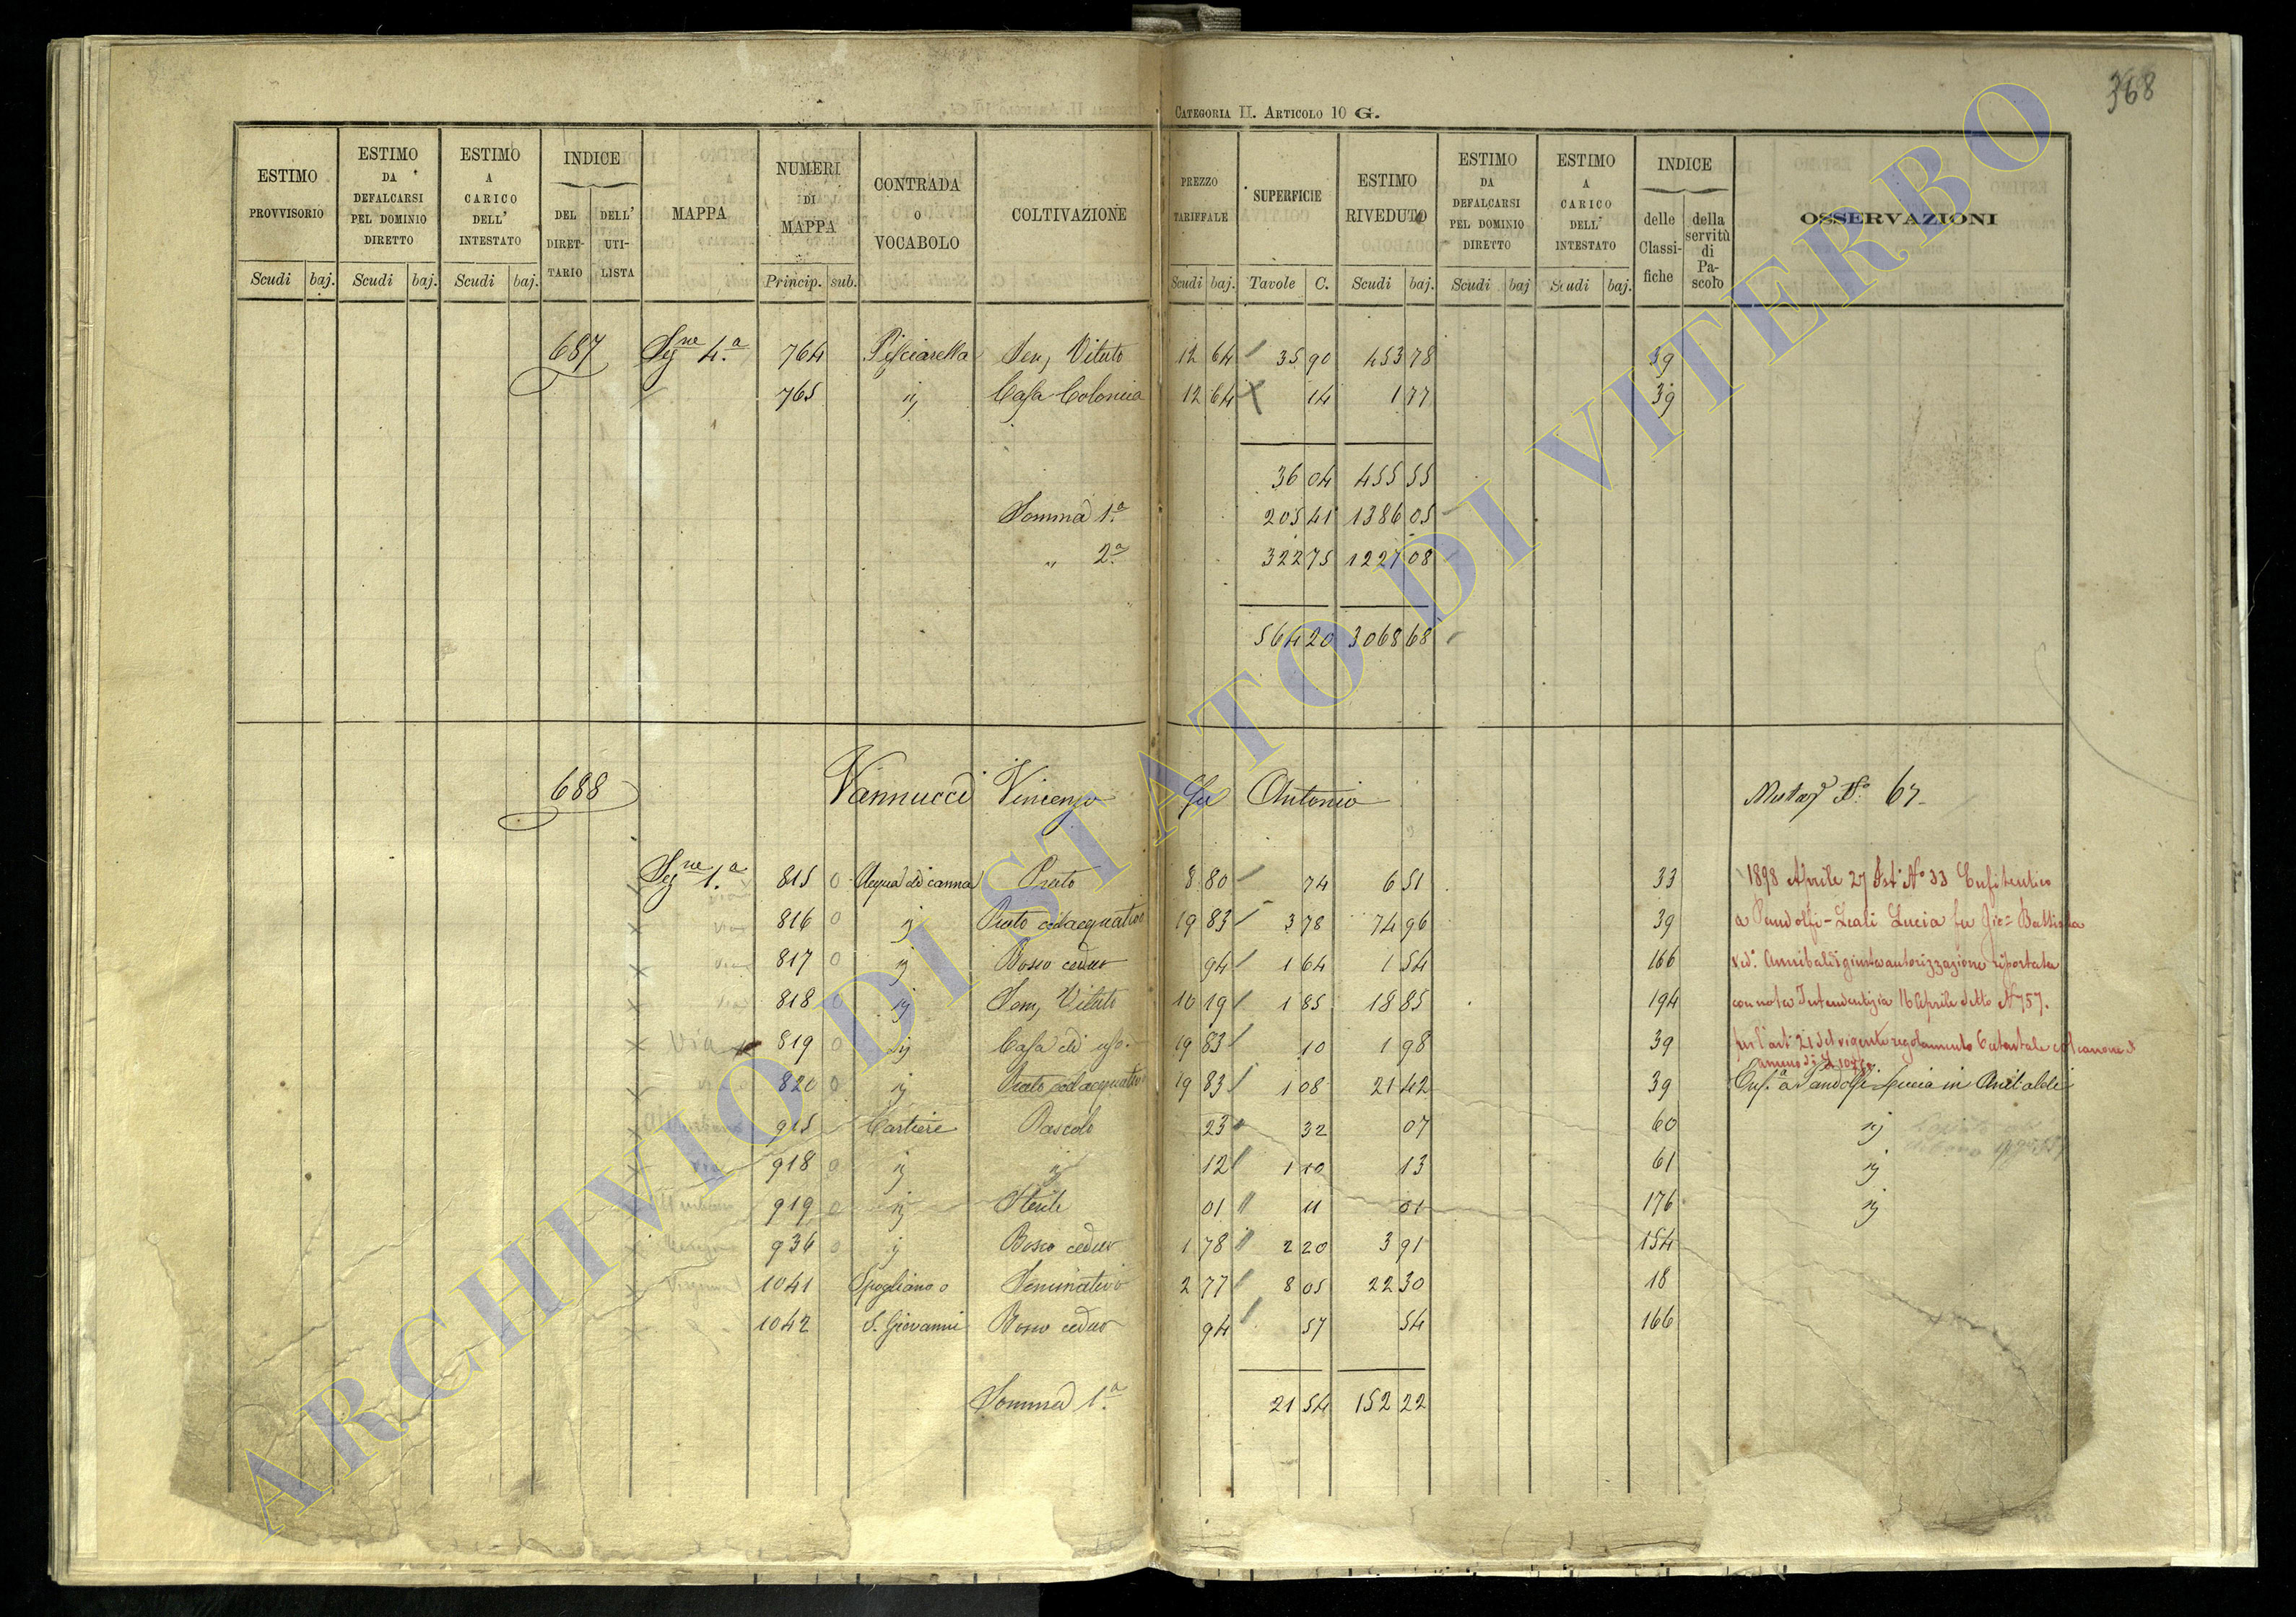 368
CATEGORIA II. ARTICOLO 10 G.
ESTIMO PROVVISORIO | ESTIMO DA DEFALCARSI PEL DOMINIO DIRETTO | ESTIMO A CARICO DELL' INTESTATO | INDICE DEL DIRETTARIO | DELL' UTILISTA | MAPPA | NUMERI DI MAPPA | CONTRADA O VOCABOLO | COLTIVAZIONE | PREZZO TARIFFALE | SUPERFICIE | ESTIMO RIVEDUTO | ESTIMO DA DEFALCARSI PEL DOMINIO DIRETTO | ESTIMO A CARICO DELL' INTESTATO | INDICE delle Classifiche | della servitù di Pascolo | OSSERVAZIONI
Scudi baj. Scudi baj. Scudi baj. Princip. sub. Scudi baj. Tavole C. Scudi baj. Scudi baj Scudi baj.
687 Sez.ne 4.a 764 Pisciarella Sem, Vitato 12 64 35 90 453 78 39
765 ij Casa Colonica 12 64 14 1 77 39
36 04 455 55
Somma 1.a 205 41 1386 05
" 2.a 322 75 1227 08
564 20 3068 68
688 Vannucci Vincenzo fu Antonio N.o 67
Sez.ne 1.a 815 0 Acqua di canna Prato 8 80 74 6 51 33 1898 Aprile 27 Ist. N.o 33 Enfiteutico
816 0 ij Prato adacquativo 19 83 3 78 74 96 39 a Pandolfi-Leali Lucia fu Gio: Battista
817 0 ij Bosco ceduo 94 1 64 1 54 166 Annibaldi giusta autorizzazione riportata
818 0 ij Sem, Vitato 10 19 1 85 18 85 194 con nota Intendentizia 16 Aprile detto N.757.
Via 819 0 ij Casa di uso 19 83 10 1 98 39 per l'art. 21 del vigente regolamento Catastale col canone
820 0 ij Prato adacquativo 19 83 1 08 21 42 39 Enf.a a Pandolfi Lucia in Anibaldi
915 Cartiere Pascolo 23 32 07 60 ij
918 0 ij ij 12 1 10 13 61 ij
919 0 ij Sterile 01 11 01 176 ij
936 0 ij Bosco ceduo 1 78 2 20 3 91 154
1041 Spogliano o Seminativo 2 77 8 05 22 30 18
1042 S. Giovanni Bosco ceduo 94 57 54 166
Somma 1.a 21 54 152 22
ARCHIVIO DI STATO DI VITERBO